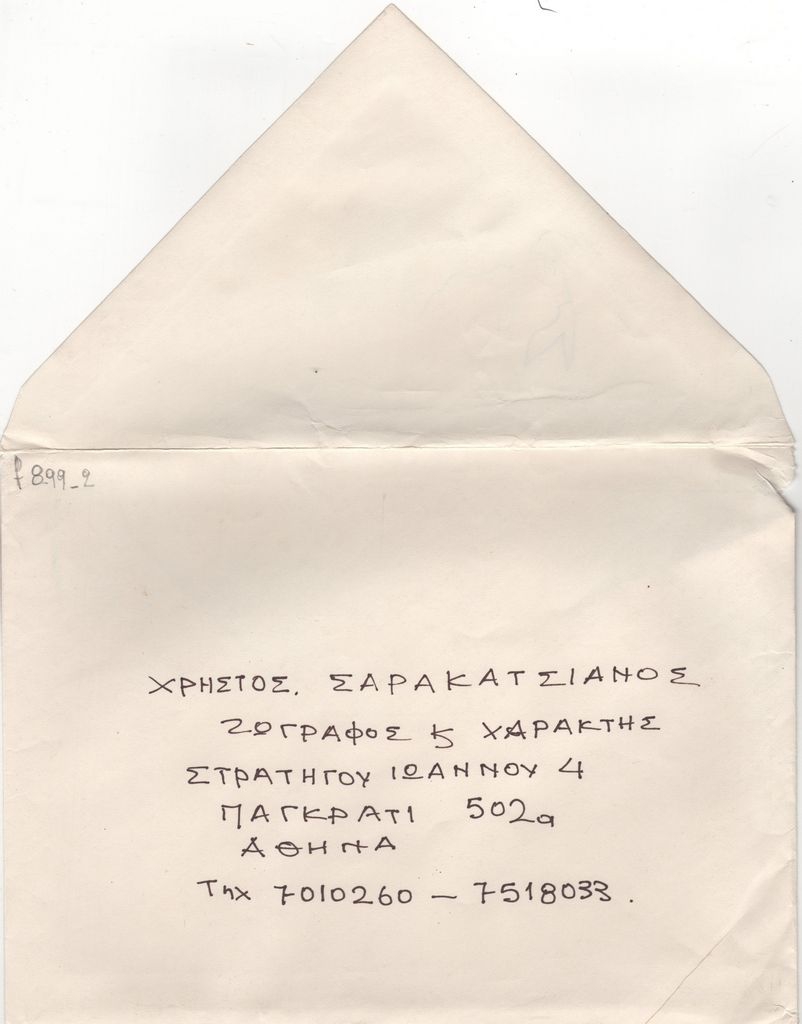 f 899_2
ΧΡΗΣΤΟΣ. ΣΑΡΑΚΑΤΣΙΑΝΟΣ
ΖΩΓΡΑΦΟΣ Κ ΧΑΡΑΚΤΗΣ
ΣΤΡΑΤΗΓΟΥ ΙΩΑΝΝΟΥ 4
ΠΑΓΚΡΑΤΙ 502α
ΑΘΗΝΑ
Τηλ 7010260 – 7518033.